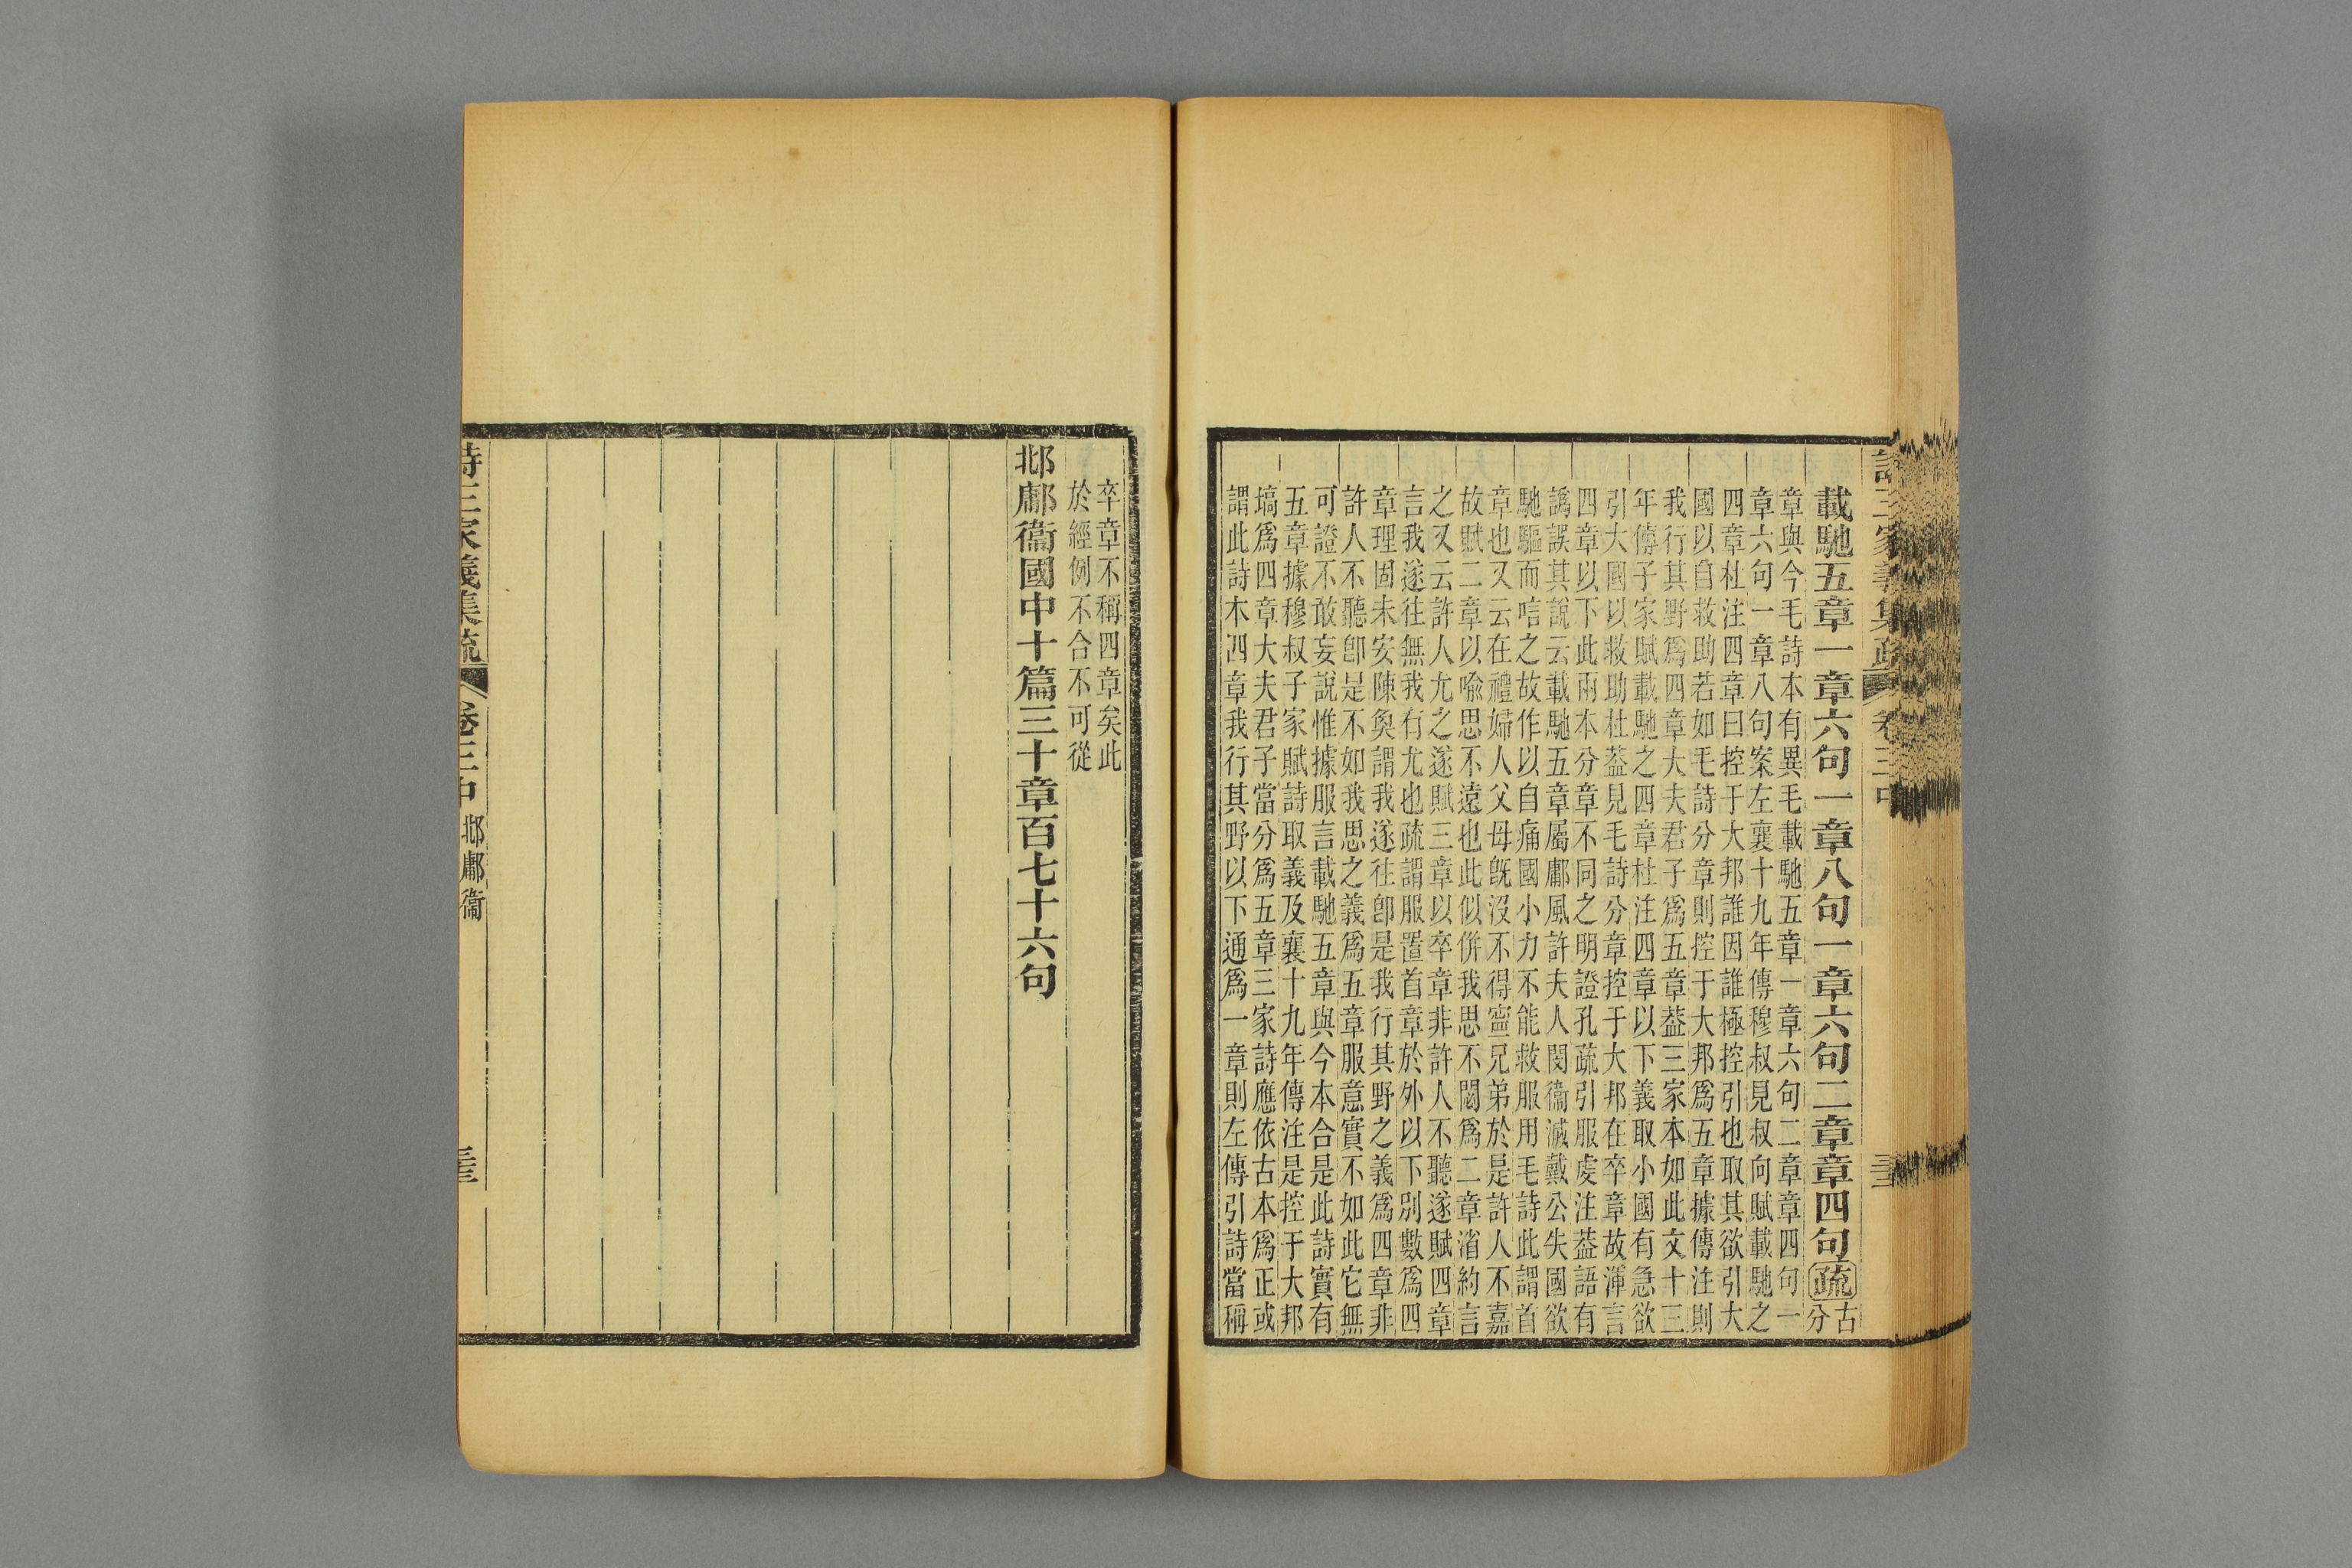 詩三家義集疏 卷三中
載馳五章一章六句一章八句一章六句二章章四句疏古
分
章與今毛詩本有異毛載馳五章一章六句二章章四句一
章六句一章八句案左襄十九年傳穆叔見叔向賦載馳之
四章杜注四章曰控于大邦誰因誰極控引也取其欲引大
國以自救助若如毛詩分章則控于大邦爲五章據傳注則
我行其野爲四章大夫君子爲五章葢三家本如此文十三
年傳子家賦載馳之四章杜注四章以下義取小國有急欲
引大國以救助杜葢見毛詩分章控于大邦在卒章故渾言
四章以下此兩本分章不同之明證孔疏引服虔注葢語有
譌誤其說云載馳五章屬鄘風許夫人閔衞滅戴公失國欲
馳驅而唁之故作以自痛國小力不能救服用毛詩此謂首
章也又云在禮婦人父母旣沒不得寧兄弟於是許人不嘉
故賦二章以喩思不遠也此似倂我思不閟爲二章渻約言
之又云許人尤之遂賦三章以卒章非許人不聽遂賦四章
言我遂往無我有尤也疏謂服置首章於外以下別數爲四
章理固未安陳奐謂我遂往卽是我行其野之義爲四章非
許人不聽卽是不如我思之義爲五章服意實不如此它無
可證不敢妄說惟據服言載馳五章與今本合是此詩實有
五章據穆叔子家賦詩取義及襄十九年傳注是控于大邦
塙爲四章大夫君子當分爲五章三家詩應依古本爲正或
謂此詩本四章我行其野以下通爲一章則左傳引詩當稱
卒章不稱四章矣此
於經例不合不可從
邶鄘衞國中十篇三十章百七十六句
詩三家義集疏 卷三中 邶鄘衞